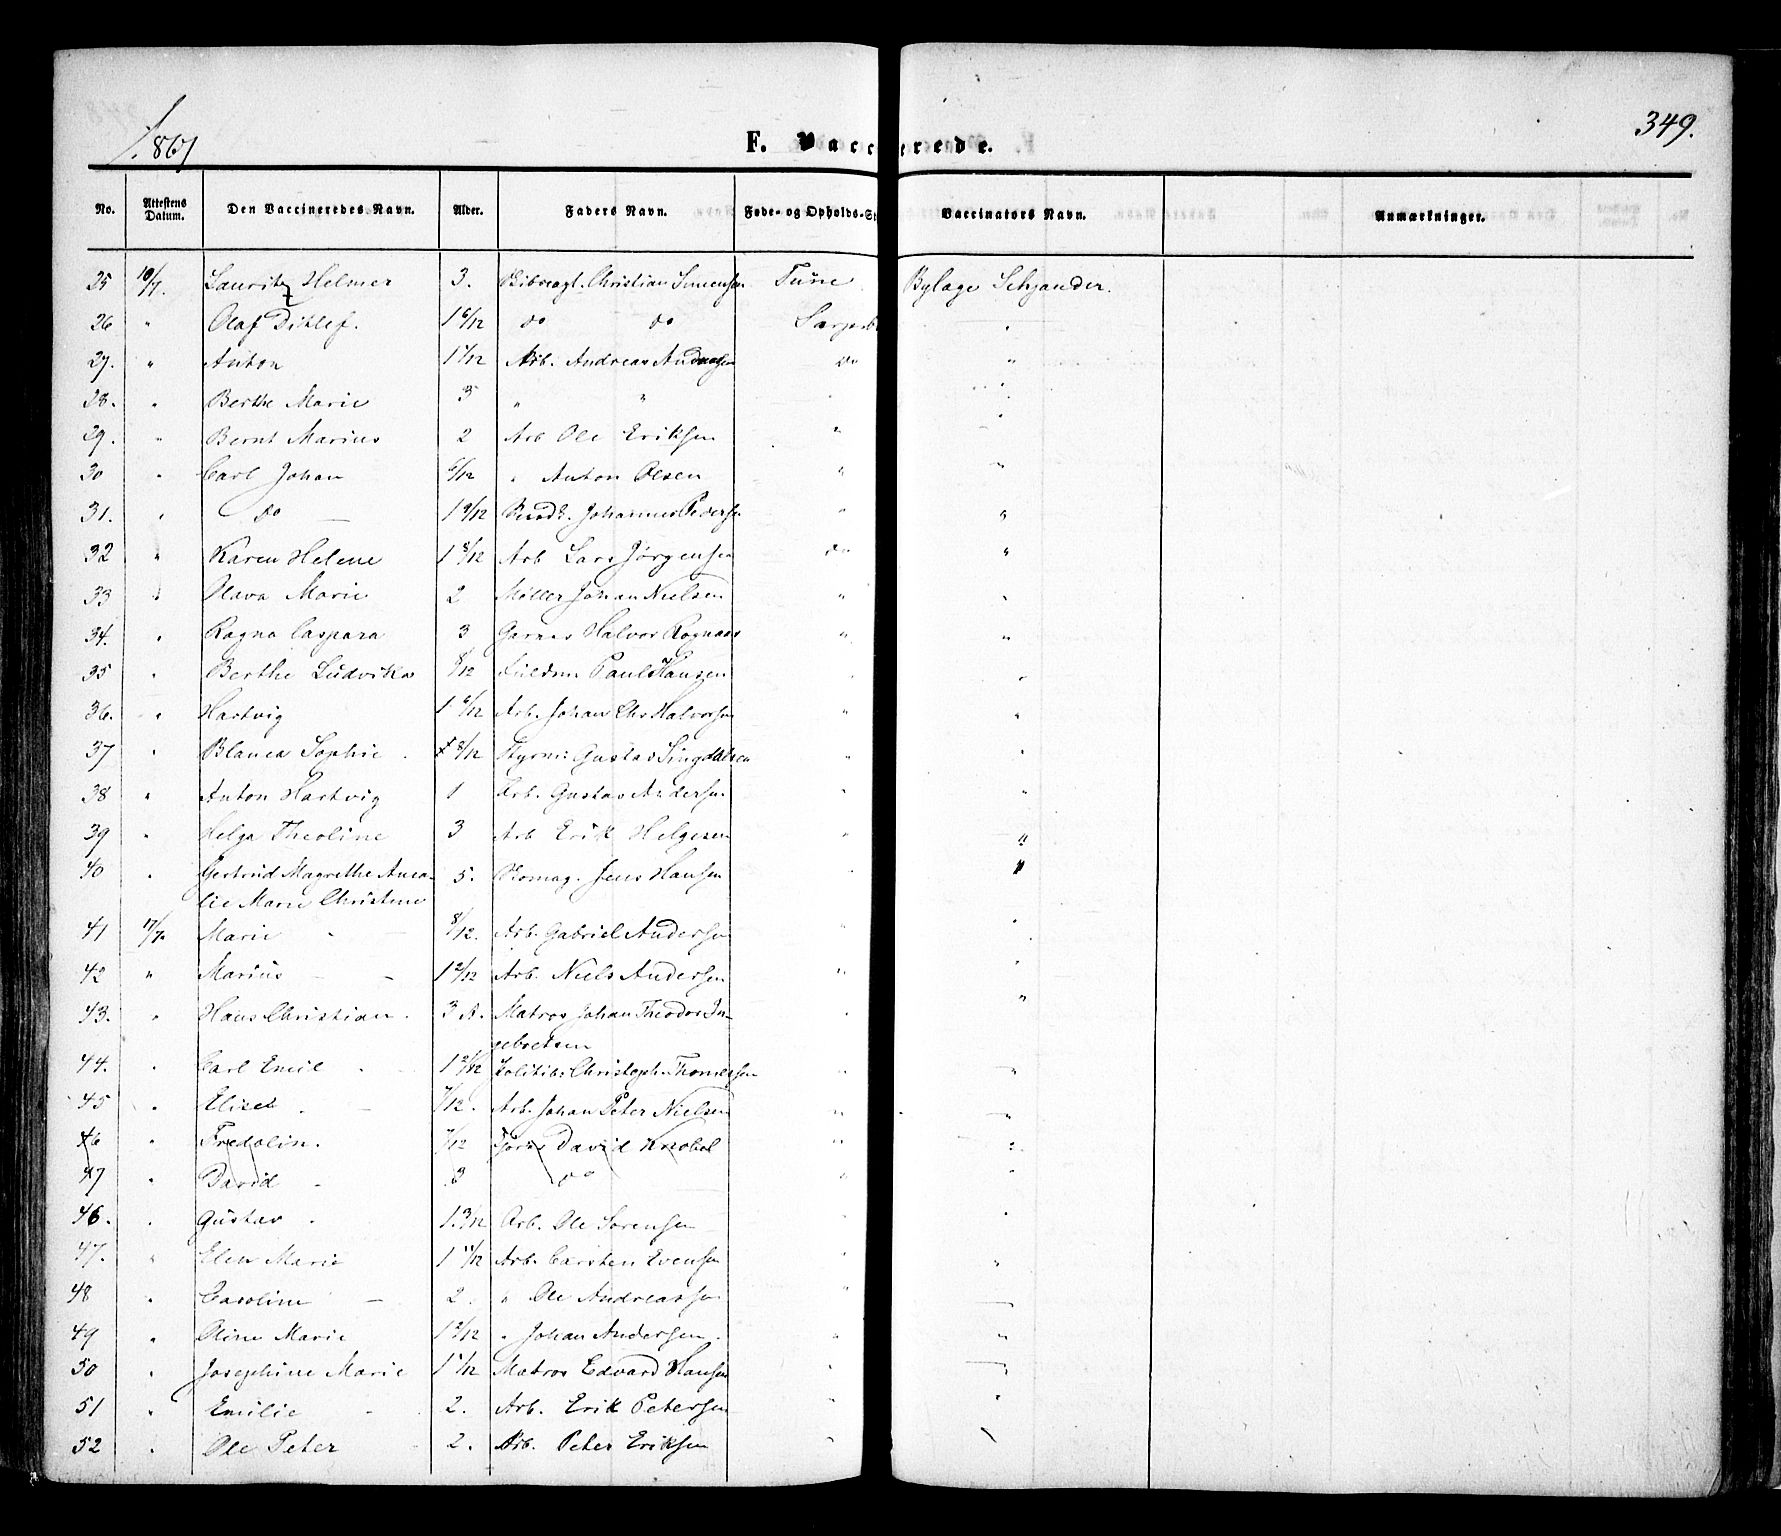 1867
F. Vaccinerede.
349.
No. Attestens Datum. Den Vaccineredes Navn. Alder. Faders Navn. Føde- og Opholds-St Vaccinators Navn. Anmærkninger.
25 10/7. Lauritz Helmer 3. Christian Simensen Tune Bylæge Schjander.
26 " Olaf Ditlef. 1 6/12 do do Sarpsb "
27. " Anton Arb. Andreas Andreasen do "
28. " Berthe Marie 3 " " " "
29. " Bernt Marius 2 Arb Ole Eriksen " "
30 " Carl Johan 6/12 " Anton Olsen " "
31. " do — 1 9/12 Johannes Pedersen " "
32 " Karen Helene 1 8/12 Arb Lars Jørgensen do "
33 " Olava Marie 2 Møller Johan Nielsen " "
34. " Ragna Caspara 3 Garver Halvor Rognaas " "
35 " Berthe Ludvika 8/12 Paul Hansen " "
36. " Hartvig 1 6/12 Arb. Johan Chr Halvorsen " "
37 " Blanca Sophie . 8/12 Styrm: Gustav " "
38 " Anton Hartvig 1 Arb. Gustav Andersen " "
39 " Helga Theoline 3 Arb Erik Helgesen " "
40 " Gertrud Magrethe Ama- 5. Blomag. Jens Hansen " "
lie Marie Christine
41 17/7. Marie - — 8/12. Arb. Gabriel Andersen " "
42 " Marius — - 1 2/12 Arb. Niels Andersen " "
43. " Hans Christian . 3 A. Matros Johan Theodor In- " "
gebretsen
44. " Carl Emil - 1 2/12 Politib: Christoph Thomessen " "
45 " Elise . — 7/12. Arb. Johan Peter Nielsen " "
46 " Fredolin. 7/12 David Knobel " "
47 " David - 3 do " "
46. " Gustav . 1. 3/12 Arb. Ole Sørensen " "
47. " Elen Marie 1 11/12 Arb. Carsten Evensen " "
48 " Caroline — 2. " Ole Andreassen " —
49 " Oline Marie 1 2/12 " Johan Andersen. " "
50 " Josephine Marie Matros Edvard Hansen " —
51 " Emilie - 2. Arb. Erik Petersen " "
52 " Ole Peter 2. Arb. Peter Eriksen " "